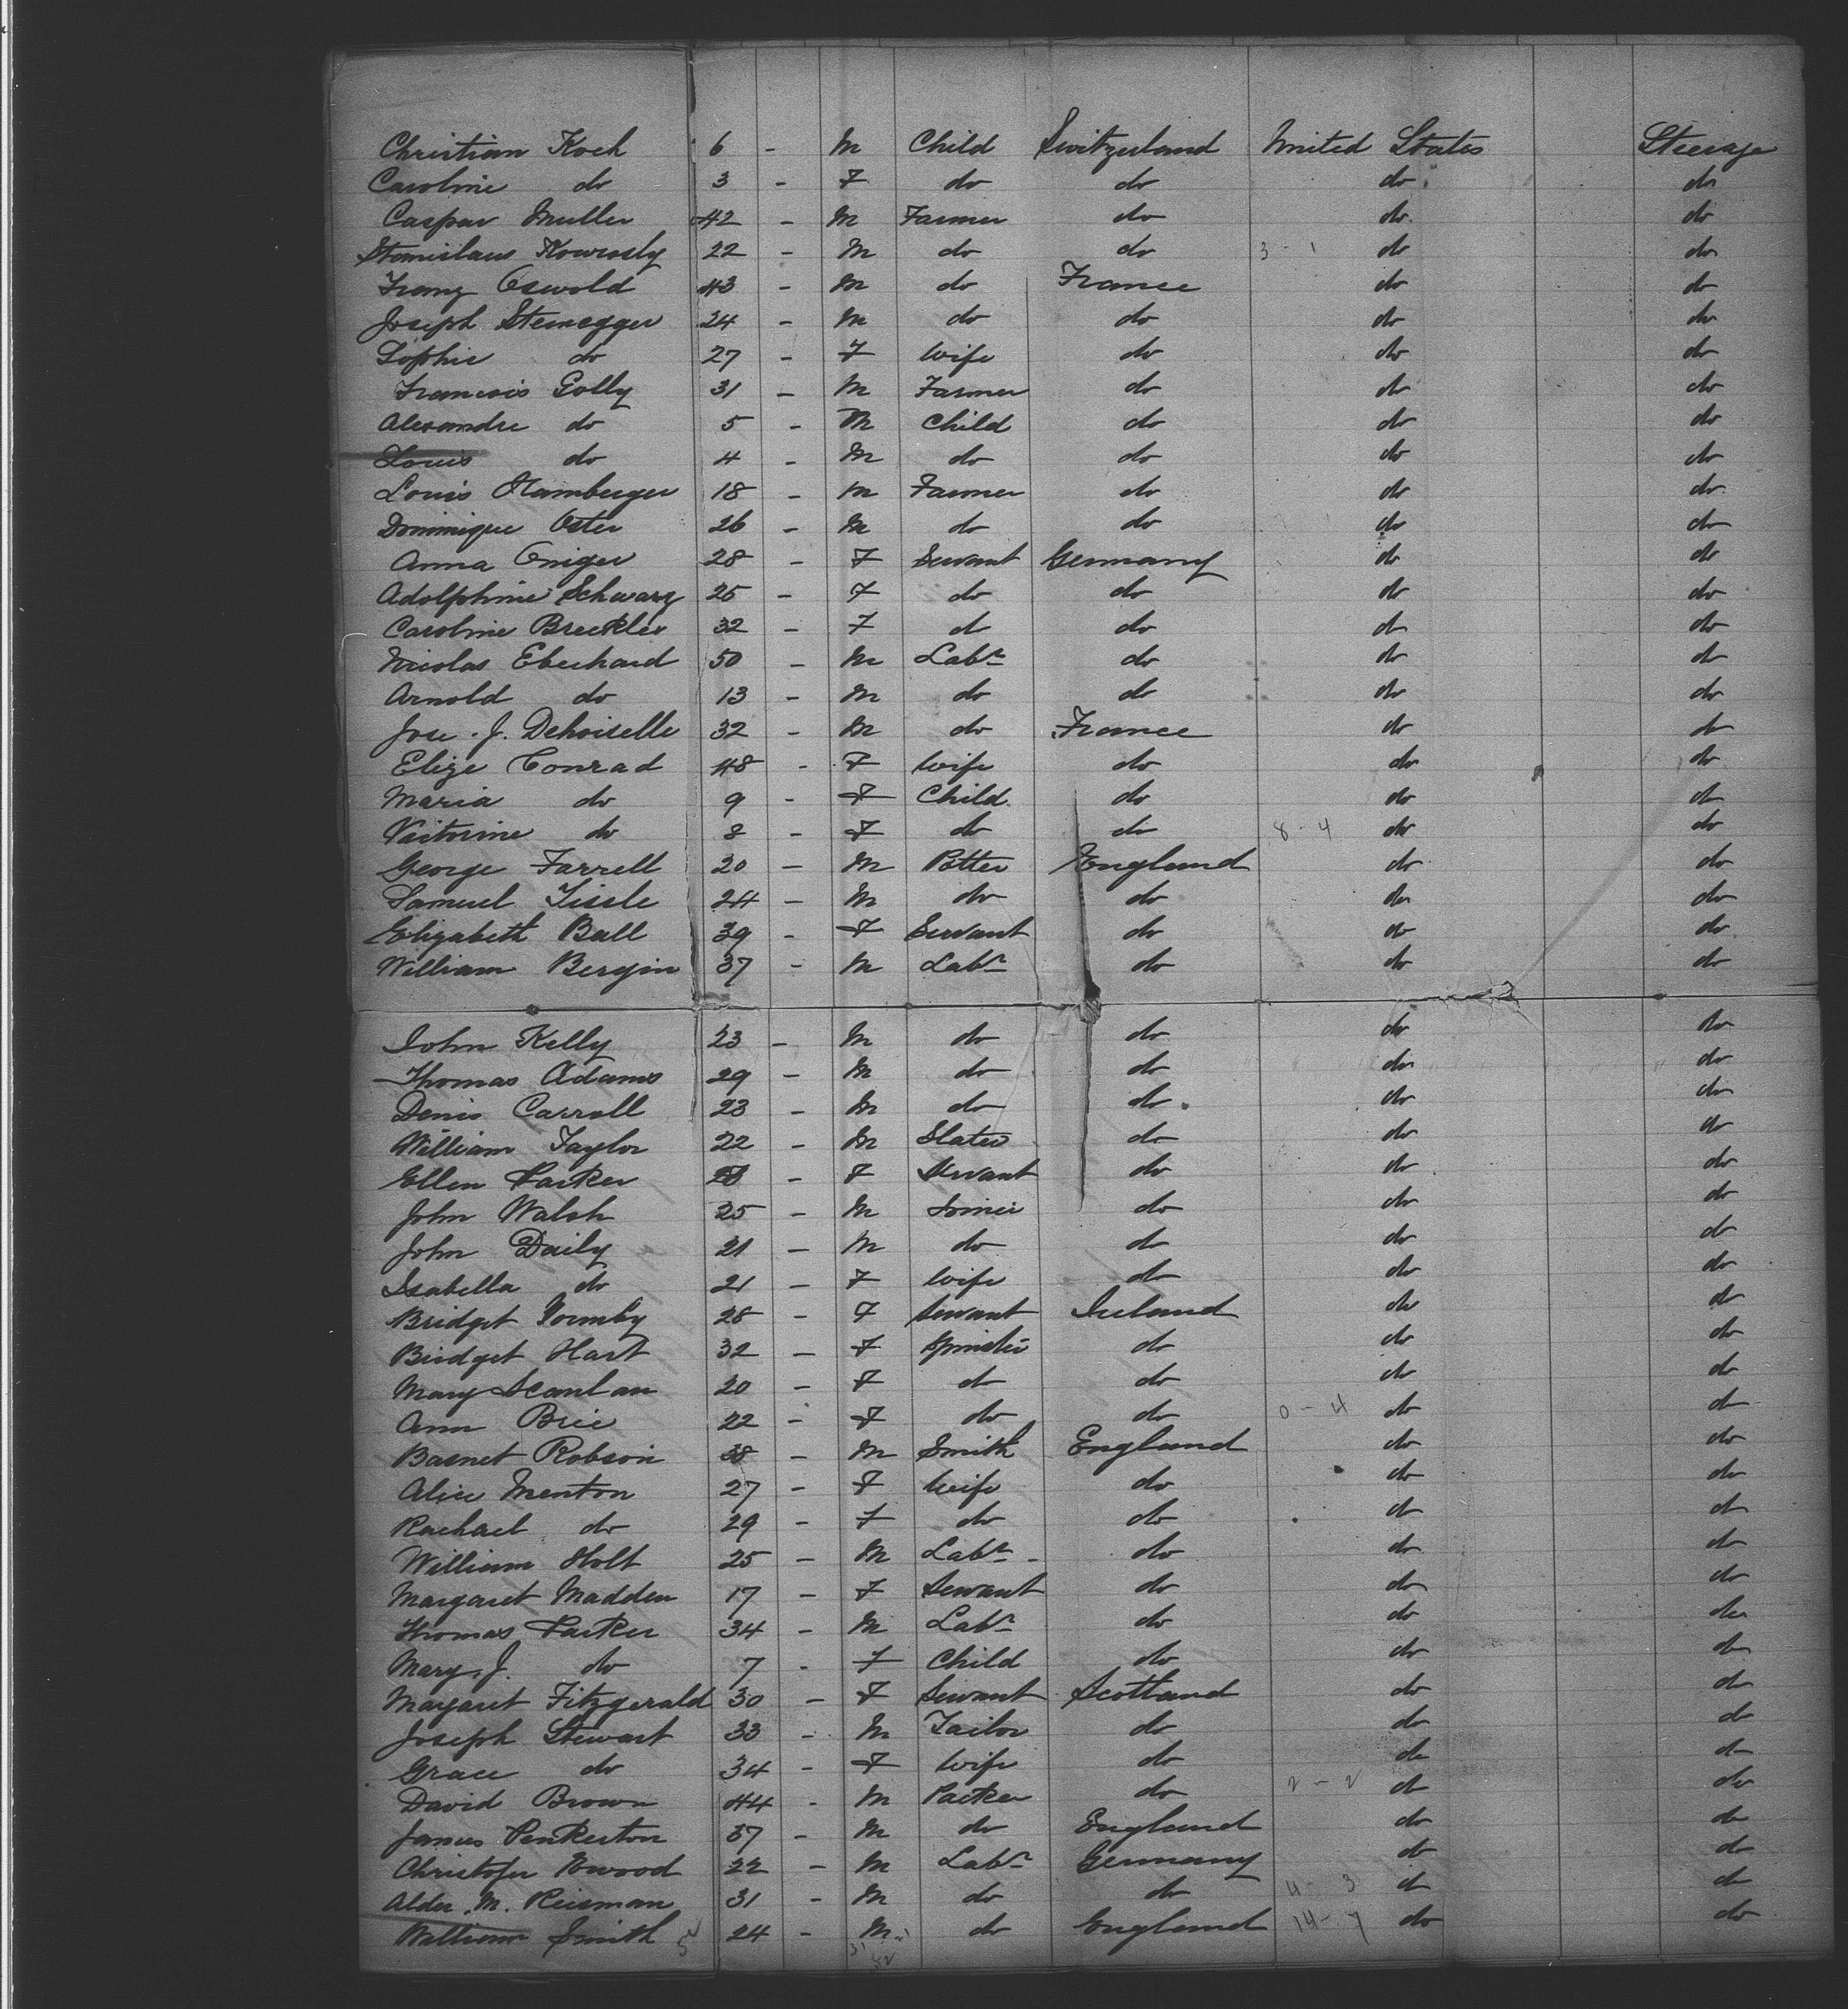 Christian Koch 6 - M Child Switzerland United States Steerage
Caroline do 3 - F do do do do
Caspar Muller 42 - M Farmer do do do
Stanislaus 22 - M do do 3 - 1 do do
Franz Oswold 43 - M do France do do
Joseph Steinegger 24 - M do do do do
Sophie do 27 - F Wife do do do
Francois Golly 31 - M Farmer do do do
Alexandre do 5 - M Child do do do
Louis do 4 - M do do do do
Louis Hamberger 18 - M Farmer do do do
Dominique Oster 26 - M do do do do
Anna 28 - F Servant Germany do do
Adolphine Schwarz 25 - F do do do do
Caroline Breckler 32 - F do do do do
Nicolas Eberhard 50 - M Labr do do do
Arnold do 13 - M do do do do
Jose. J. Dehoiselle 32 - M do France do do
Elize Conrad 48 - F Wife do do do
Maria do 9 - F Child do do do
Victorine do 8 - F do do 8 - 4 do do
George Farrell 20 - M Potter England do do
Samuel 24 - M do do do do
Elizabeth Ball 39 - F Servant do do do
William Bergin 37 - M Labr do do do
John Kelly 23 - M do do do do
Thomas Adams 29 - M do do do do
Denis Carroll 23 - M do do do do
William Taylor 22 - M Slater do do do
Ellen Parker - F Servant do do do
John Walsh 25 - M Joiner do do do
John Daily 21 - M do do do do
Isabella do 21 - F Wife do do do
Bridget Formby 28 - F Servant Ireland do do
Bridget Hart 32 - F Spinster do do do
Mary Scanlan 20 - F do do do do
Ann Brie 22 - F do do 0 - 4 do do
Barnet Robson 38 - M Smith England do do
Alice Menton 27 - F Wife do do do
Rachael do 29 - F do do do do
William Holt 25 - M Labr - do do do
Margaret Madden 17 - F Servant do do do
Thomas Parker 34 - M Labr do do do
Mary. J. do 7 - F Child do do do
Margaret Fitzgerald 30 - F Servant Scotland do do
Joseph Stewart 33 - M Tailor do do do
Grace do 34 - F Wife do do do
David Brown 44 - M Packer do 2 - 2 do do
James Penkerton 37 - M do England do do
Christofer 22 - M Labr Germany do do
Alder. M. Reisman 31 - M do do 4 - 3 do do
William Smith 24 - M do England 14 - 7 do do